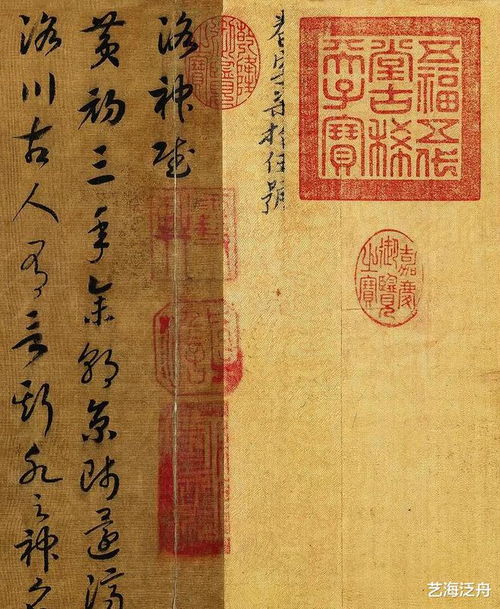 五福五代
堂古稀
天子寶
嘉慶
御覽
之寶
號
乾隆
御覽
之寶
洛神賦
黄初三年余朝京師還濟
洛川古人有言斯水之神名
艺海泛舟